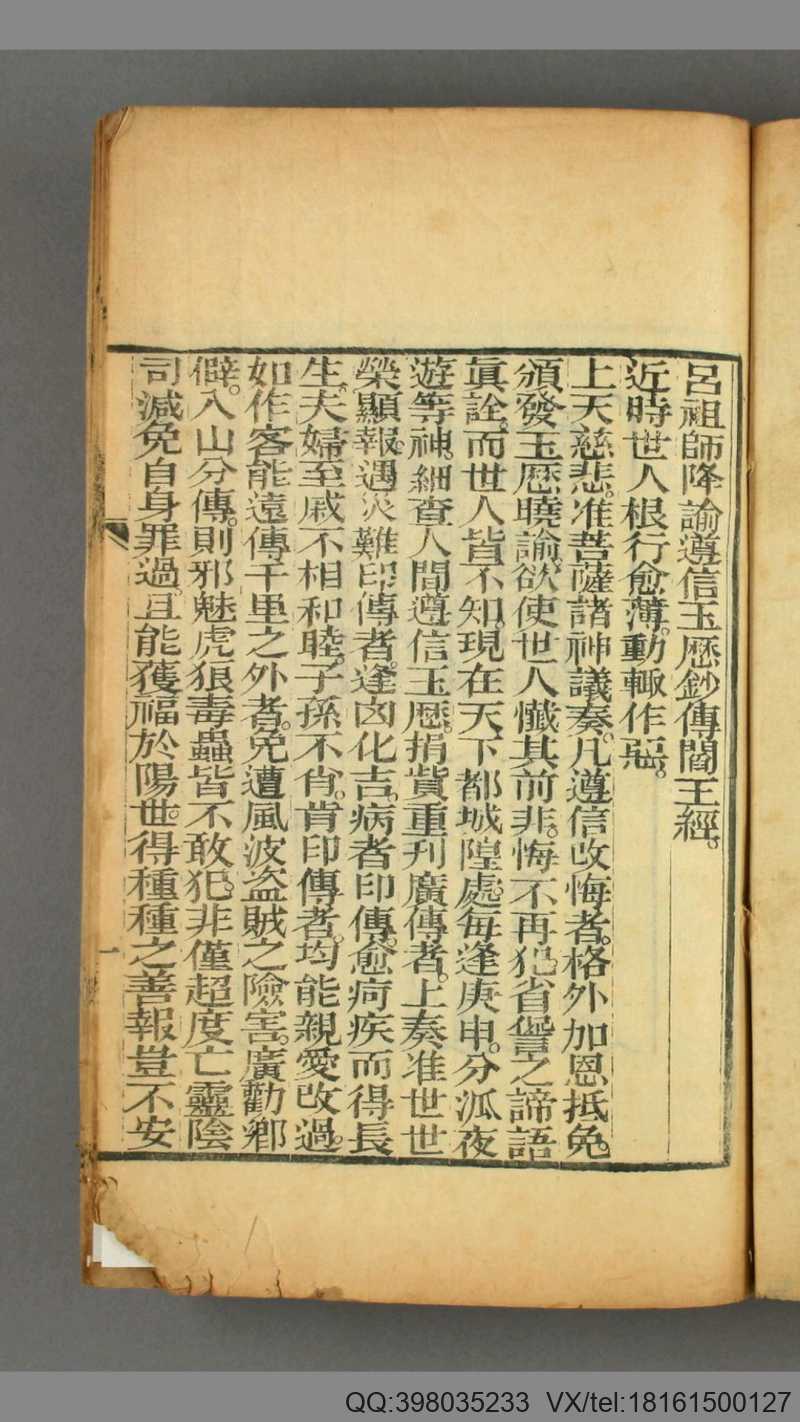 呂祖師降諭遵信玉厯鈔傳閻王經。
近時世人根行愈薄。動輙作惡。
上天慈悲。准菩薩諸神議奏。凡遵信改悔者。格外加恩抵免。
頒發玉厯曉諭。欲使世人懺其前非。悔不再犯。省諐之諦語
眞詮。而世人皆不知。現在天下都城隍處。每逢庚申。分派夜
遊等神。細查人間遵信玉厯。捐貲重刋廣傳者。上奏准世世
榮顯報。遇災難印傳者。逢凶化吉。病者印傳。愈疴疾而得長
生。夫婦至戚不相和睦。子孫不肖。肯印傳者。均能親愛改過。
如作客能遠傳千里之外者。免遭風波盗賊之險害。廣勸鄕
僻。入山分傳。則邪魅虎狼毒蟲皆不敢犯。非僅超度亡靈陰
司減免自身罪過。且能獲福於陽世。得種種之善報豈不安
一
QQ:398035233 VX/tel:18161500127